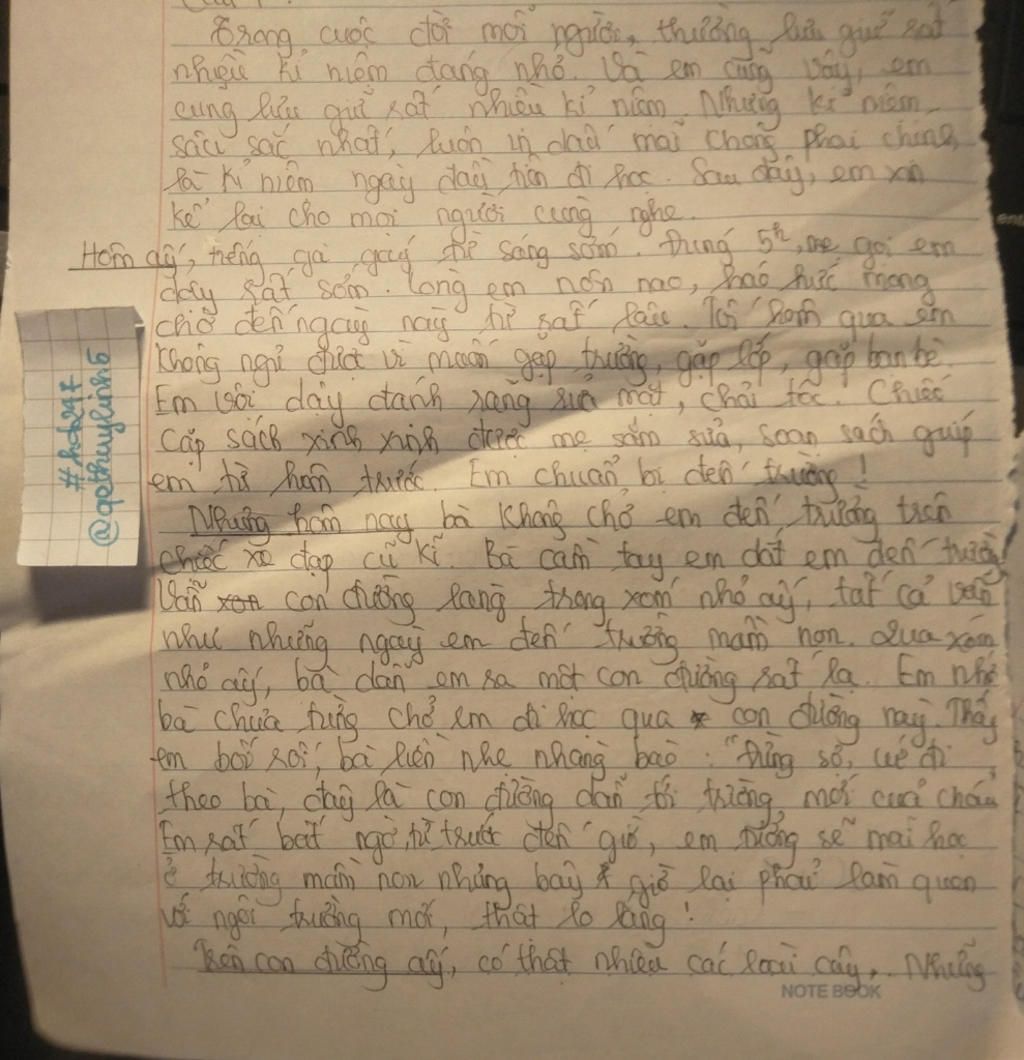 Trong cuộc đời mỗi người, thường lưu giữ rất
nhiều kỉ niệm đáng nhớ. Và em cũng vậy, em
cũng lưu giữ rất nhiều kỉ niệm. Nhưng kỉ niệm
sâu sắc nhất, luôn in dấu mãi chẳng phai chính
là kỉ niệm ngày đầu tiên đi học. Sau đây, em xin
kể lại cho mọi người cùng nghe.
Hôm ấy, tiếng gà gáy từ sáng sớm. Đúng 5h, mẹ gọi em
dậy rất sớm. Lòng em nôn nao, háo hức mong
chờ đến ngày này từ rất lâu. Tối hôm qua em
không ngủ được vì muốn gặp trường, gặp lớp, gặp bạn bè.
Em vội dậy đánh răng rửa mặt, chải tóc. Chiếc
cặp sách xinh xinh được mẹ sắm sửa, soạn sách giúp
em từ hôm trước. Em chuẩn bị đến trường!
Nhưng hôm nay bà không chở em đến trường trên
chiếc xe đạp cũ kĩ. Bà cầm tay em dắt em đến trường.
Vẫn con đường làng trong xóm nhỏ ấy, tất cả vẫn
như những ngày em đến trường mầm non. Qua xóm
nhỏ ấy, bà dẫn em ra một con đường rất lạ. Em nhớ
bà chưa từng chở em đi học qua con đường này. Thấy
em bối rối, bà liền nhẹ nhàng bảo: "Đừng sợ, cứ đi
theo bà, đây là con đường dẫn tới trường mới của cháu
Em rất bất ngờ, từ trước đến giờ, em tưởng sẽ mãi học
ở trường mầm non nhưng bây giờ lại phải làm quen
với ngôi trường mới, thật lo lắng!
Trên con đường ấy, có thật nhiều các loài cây. Những
NOTE BOOK
#hoh247
@qethuylinh5